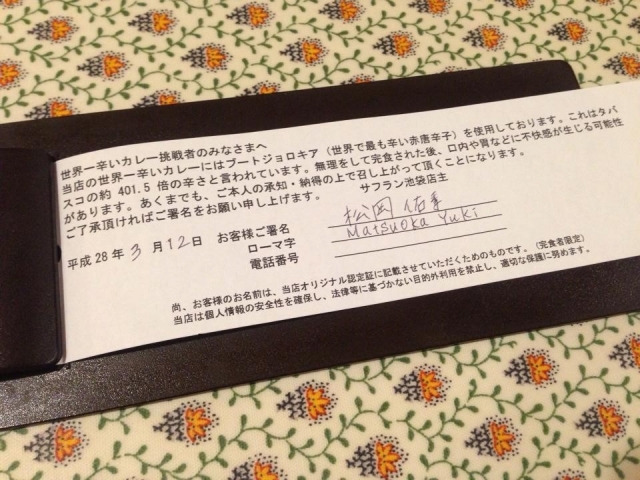 世界一辛いカレー挑戦者のみなさまへ
当店の世界一辛いカレーにはブートジョロキア（世界で最も辛い赤唐辛子）を使用しております。これはタバ
スコの約 401.5 倍の辛さと言われています。無理をして完食された後、口内や胃などに不快感が生じる可能性
があります。あくまでも、ご本人の承知・納得の上で召し上がって頂くことになります。
ご了承頂ければご署名をお願い申し上げます。 サフラン池袋店主
平成28年 3 月 12 日 お客様ご署名 松岡 佑季
ローマ字 Matsuoka Yuki
電話番号
尚、お客様のお名前は、当店オリジナル認定証に記載させていただくためのものです。（完食者限定）
当店は個人情報の安全性を確保し、法律等に基づかない目的外利用を禁止し、適切な保護に努めます。